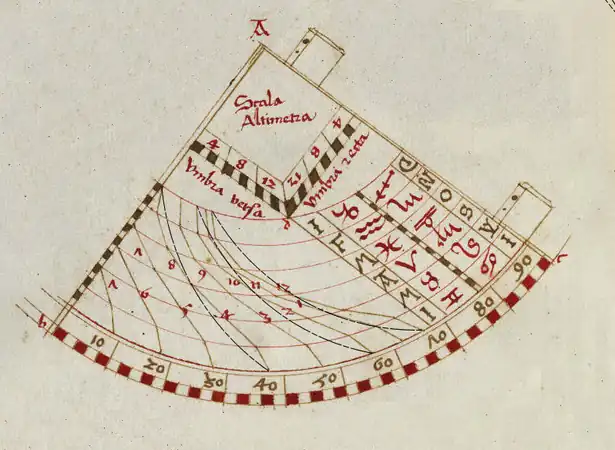 A
Scala
Altimetra
4 8 12
12 8 4
Umbra versa
Umbra recta
d
D N O S A I
I F M A M I
♐ ♏ ♎ ♍ ♌ ♋
♑ ♒ ♓ ♈ ♉ ♊
7 8 9 10 11 12
6 5 4 3 2 1
b
c
10 20 30 40 50 60 70 80 90